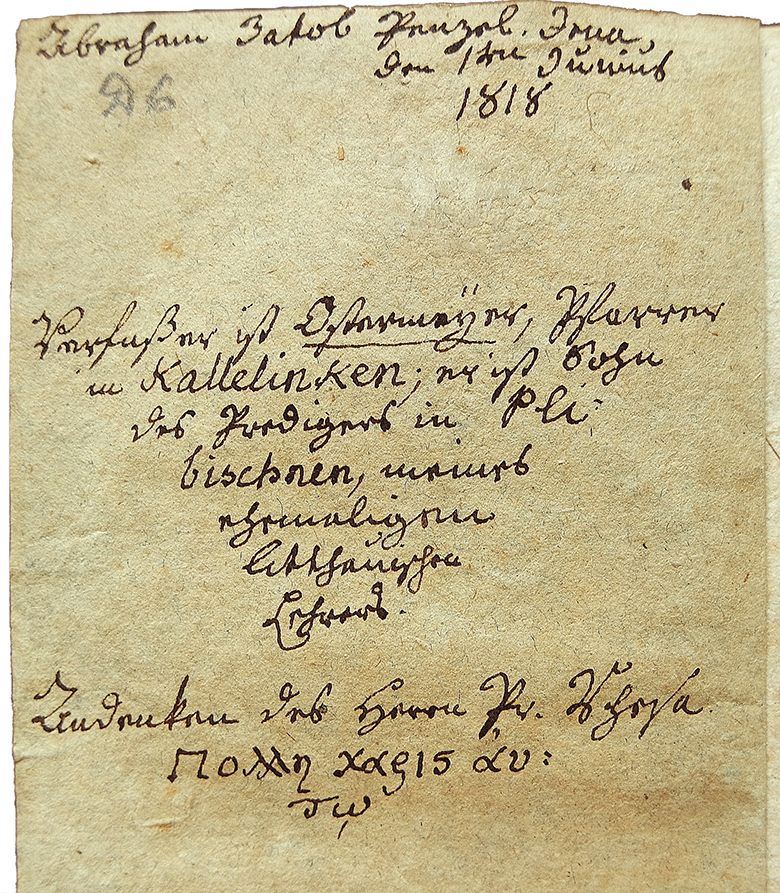 Abraham Jakob Penzel. Jena,
den 1ten Junius
1818
D6
Verfaßer ist Ostermeÿer, Pfarrer
in Kallelinken; er ist Sohn
des Predigers in Pli-
bischnen, meines
ehemaligen
litthauischen
Lehrers.
Andenken des Herrn Pr. Rhesa.
Πολλη χαρις αυ:
τῳ